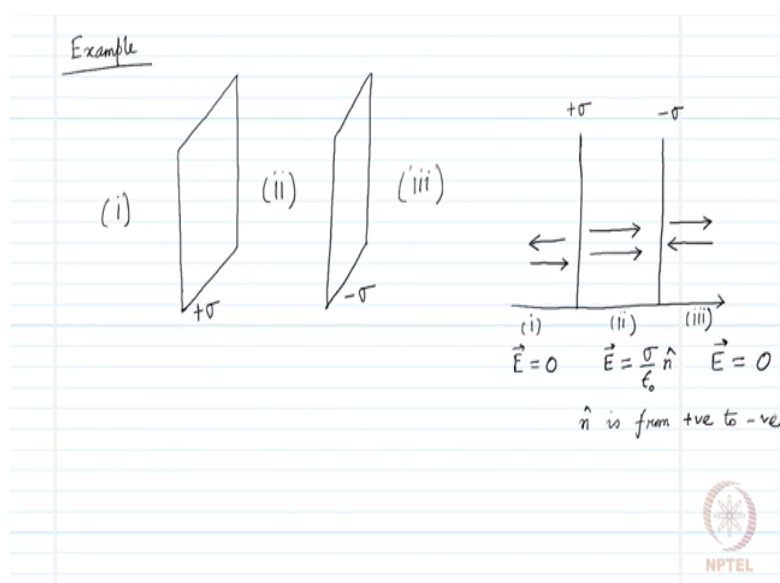 Example
(i)
(ii)
(iii)
+σ
-σ
+σ
-σ
(i) (ii) (iii)
E⃗ = 0 E⃗ = σ/ε₀ n̂ E⃗ = 0
n̂ is from +ve to -ve
NPTEL